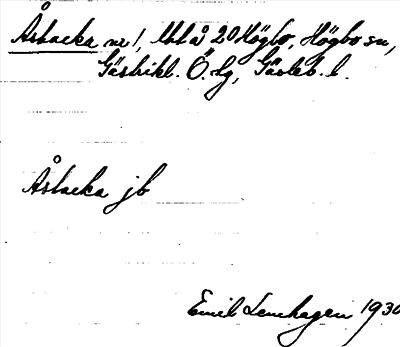 Åsbacka nr 1, Utt å 20 Högbo, Högbo sn,
Gästrikl. Ö. tg, Gävleb. l.
Åsbacka jb
Emil Lenhagen 1930